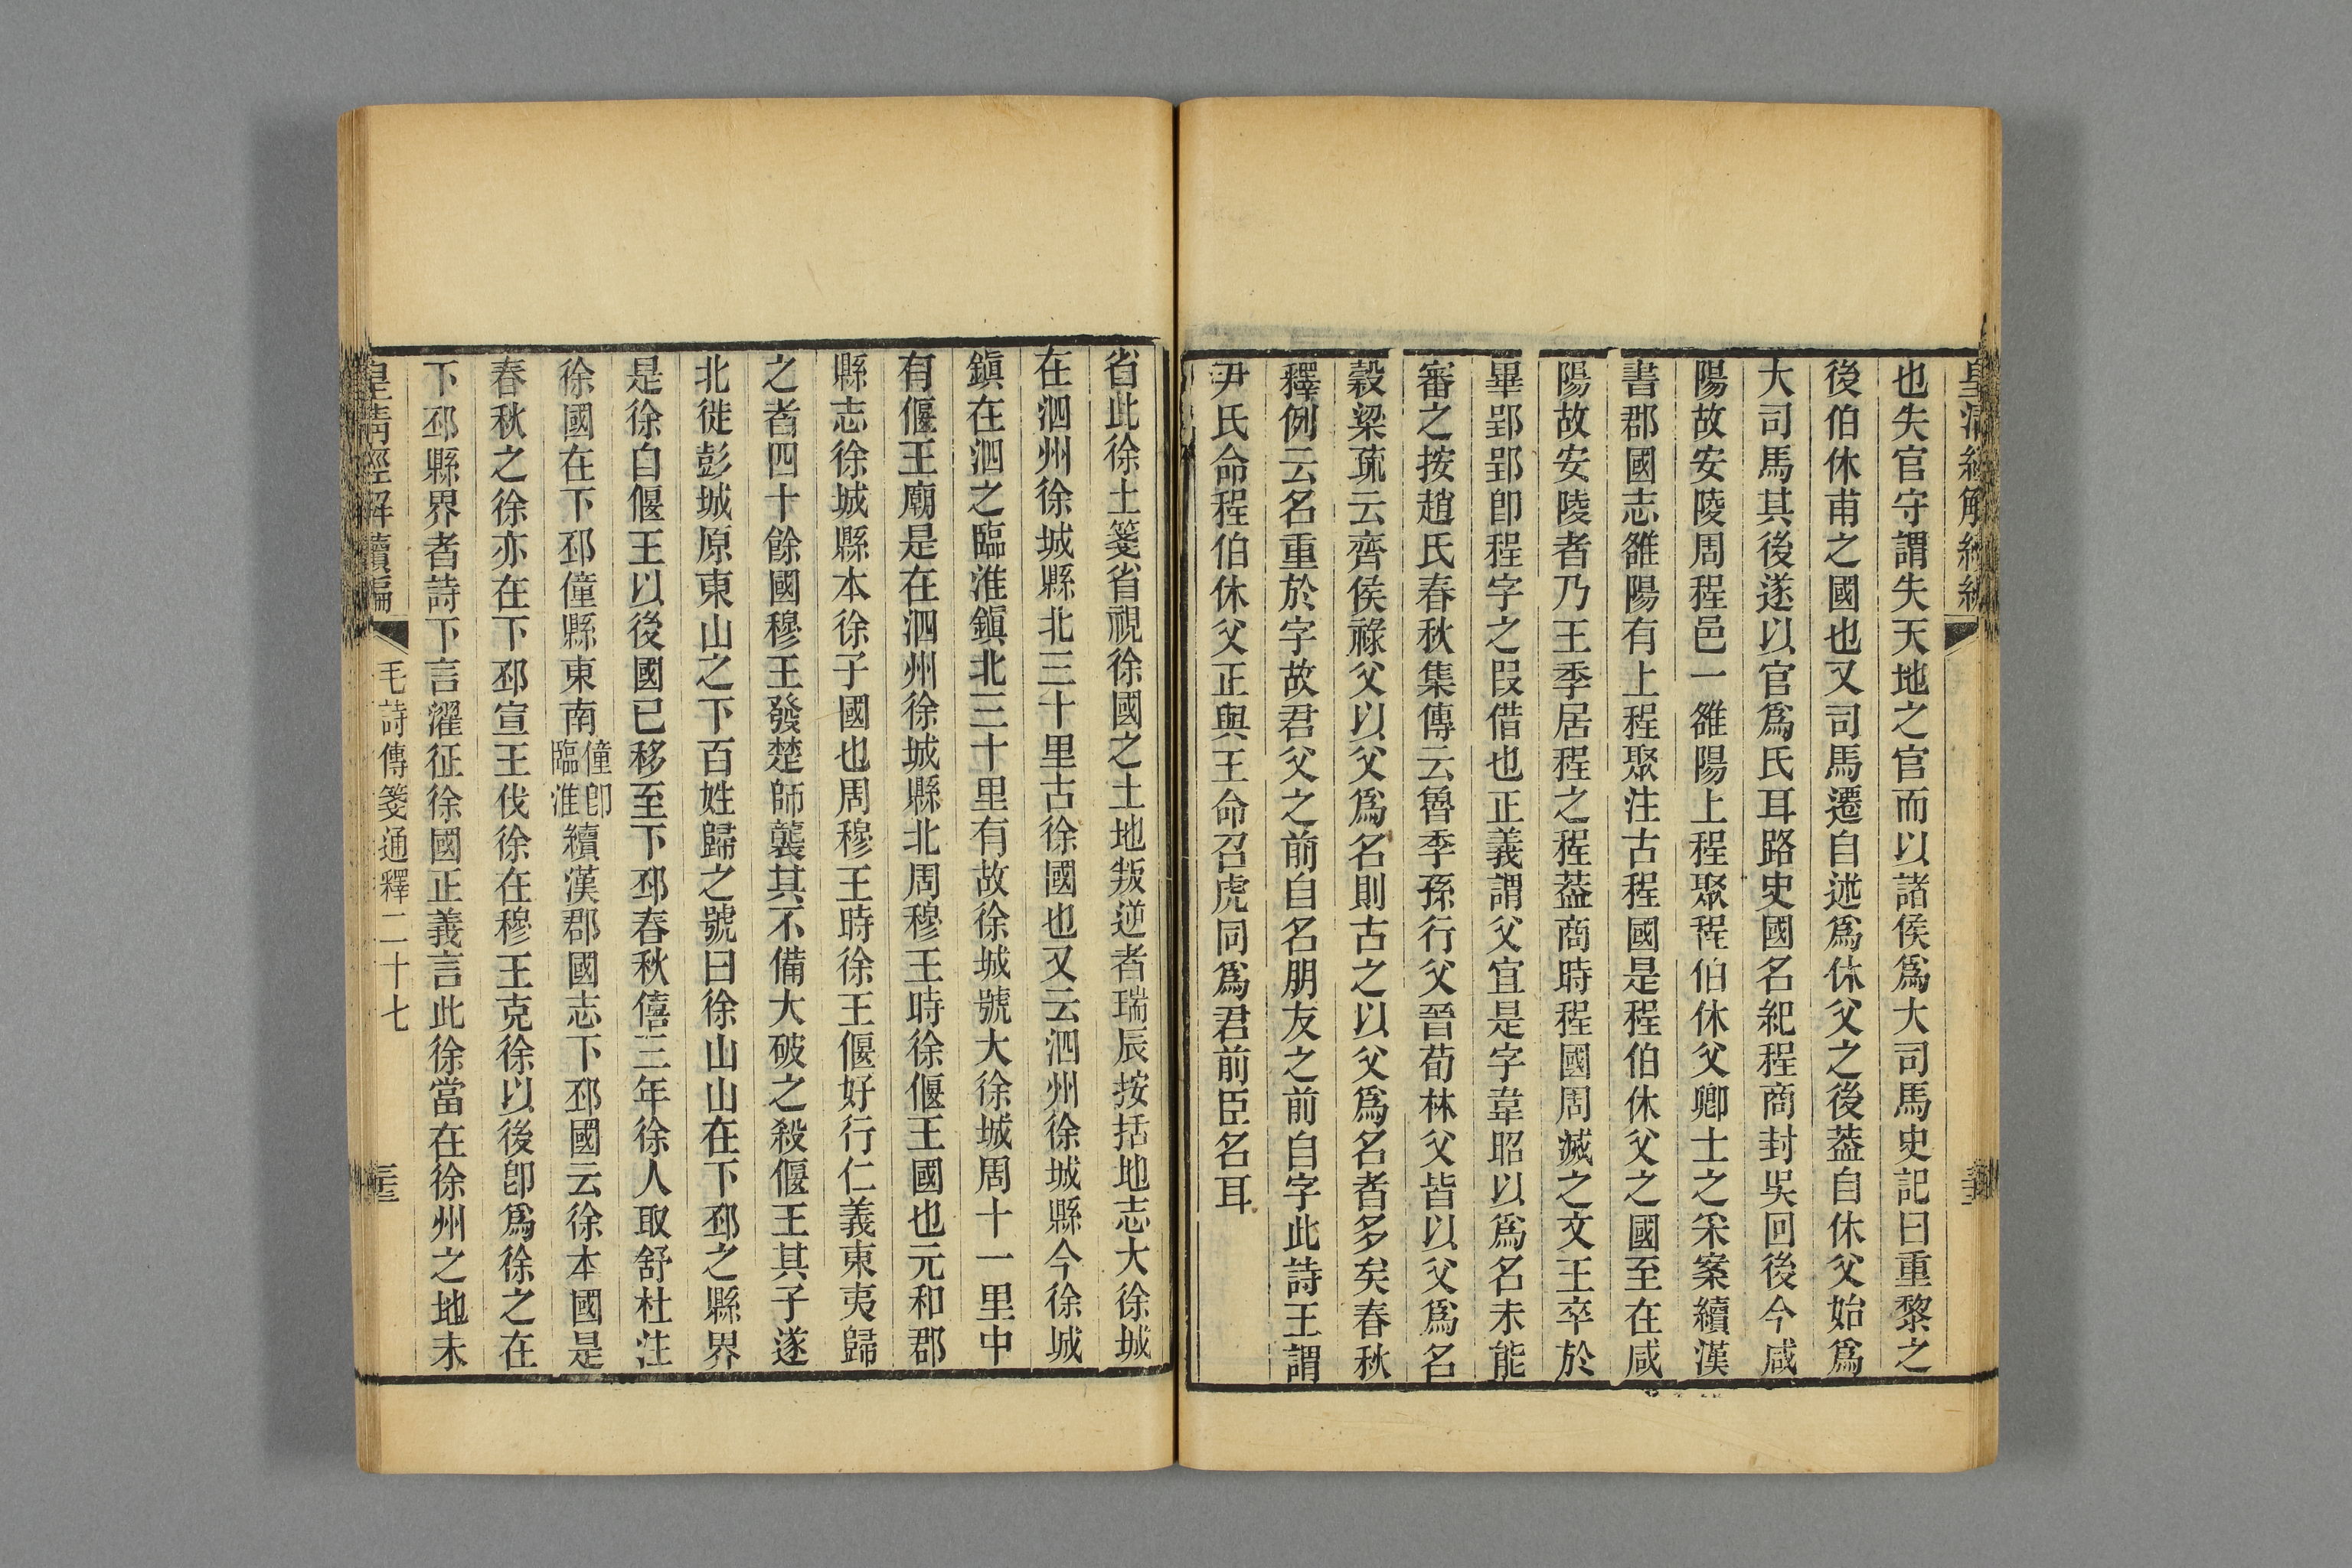 皇清經解續編
也失官守謂失天地之官而以諸侯爲大司馬史記曰重黎之
後伯休甫之國也又司馬遷自述爲休父之後葢自休父始爲
大司馬其後遂以官爲氏耳路史國名紀程商封吳回後今咸
陽故安陵周程邑一雒陽上程聚程伯休父卿士之采案續漢
書郡國志雒陽有上程聚注古程國是程伯休父之國至在咸
陽故安陵者乃王季居程之程葢商時程國周滅之文王卒於
畢郢郢卽程字之叚借也正義謂父宜是字韋昭以爲名未能
審之按趙氏春秋集傳云魯季孫行父晉荀林父皆以父爲名
穀梁疏云齊侯祿父以父爲名則古之以父爲名者多矣春秋
釋例云名重於字故君父之前自名朋友之前自字此詩王謂
尹氏命程伯休父正與王命召虎同爲君前臣名耳
省此徐土箋省視徐國之土地叛逆者瑞辰按括地志大徐城
在泗州徐城縣北三十里古徐國也又云泗州徐城縣今徐城
鎭在泗之臨淮鎭北三十里有故徐城號大徐城周十一里中
有偃王廟是在泗州徐城縣北周穆王時徐偃王國也元和郡
縣志徐城縣本徐子國也周穆王時徐王偃好行仁義東夷歸
之者四十餘國穆王發楚師襲其不備大破之殺偃王其子遂
北徙彭城原東山之下百姓歸之號曰徐山山在下邳之縣界
是徐自偃王以後國已移至下邳春秋僖三年徐人取舒杜注
徐國在下邳僮縣東南僮卽臨淮續漢郡國志下邳國云徐本國是
春秋之徐亦在下邳宣王伐徐在穆王克徐以後卽爲徐之在
下邳縣界者詩下言濯征徐國正義言此徐當在徐州之地未
皇清經解續編 毛詩傳箋通釋二十七